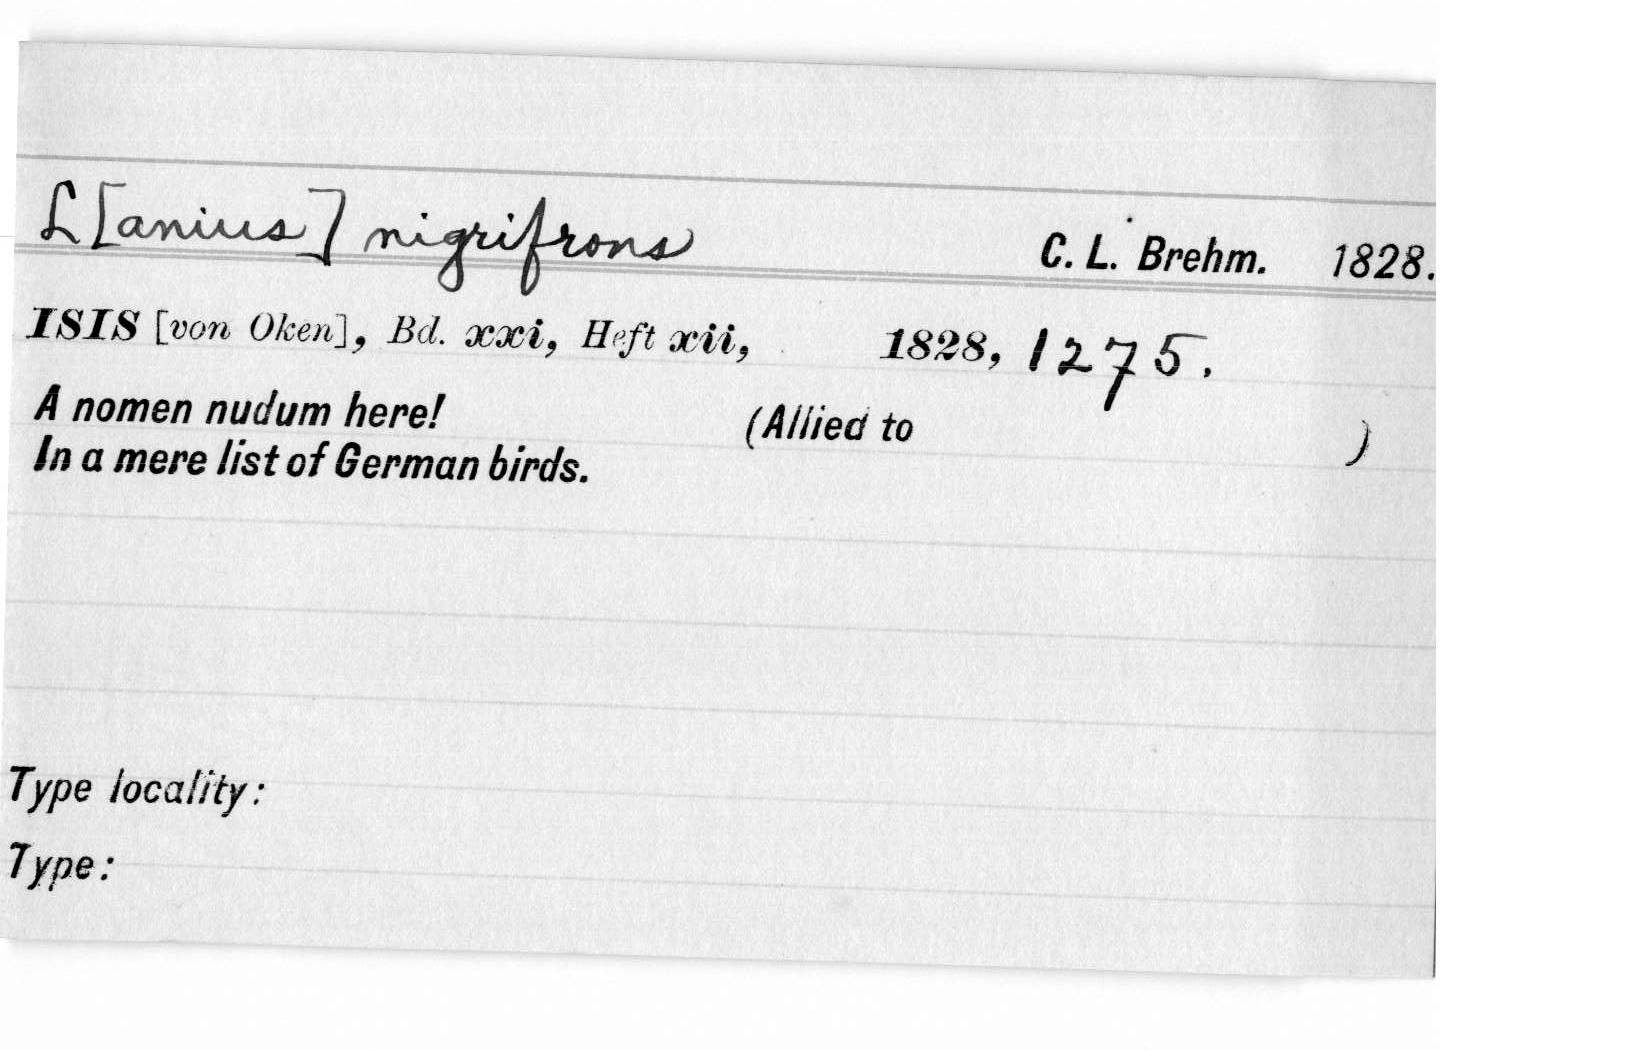 L[anius] nigrifrons C. L. Brehm. 1828.
ISIS [von Oken], Bd. xxi, Heft xii, 1828, 1275.
A nomen nudum here! (Allied to )
In a mere list of German birds.
Type locality:
Type: